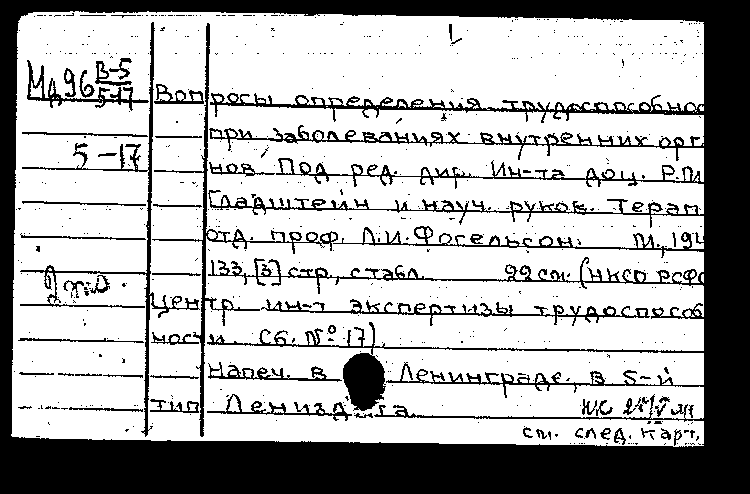 1
Мд96 В-5
5-17
Вопросы определения трудоспособнос
при заболеваниях внутренних орга
5-17
нов. Под ред. дир. Ин-та доц. Р.М.
Гладштейн и науч. руков. Терап
отд. проф. Л.И. Фогельсон. М., 194
133, [3] стр., с табл. 22 см. (НКСО РСФС
Центр. ин-т экспертизы трудоспособ
ности. Сб. № 17).
Напеч. в Ленинграде, в 5-й
тип Лениздата
см. след. карт.